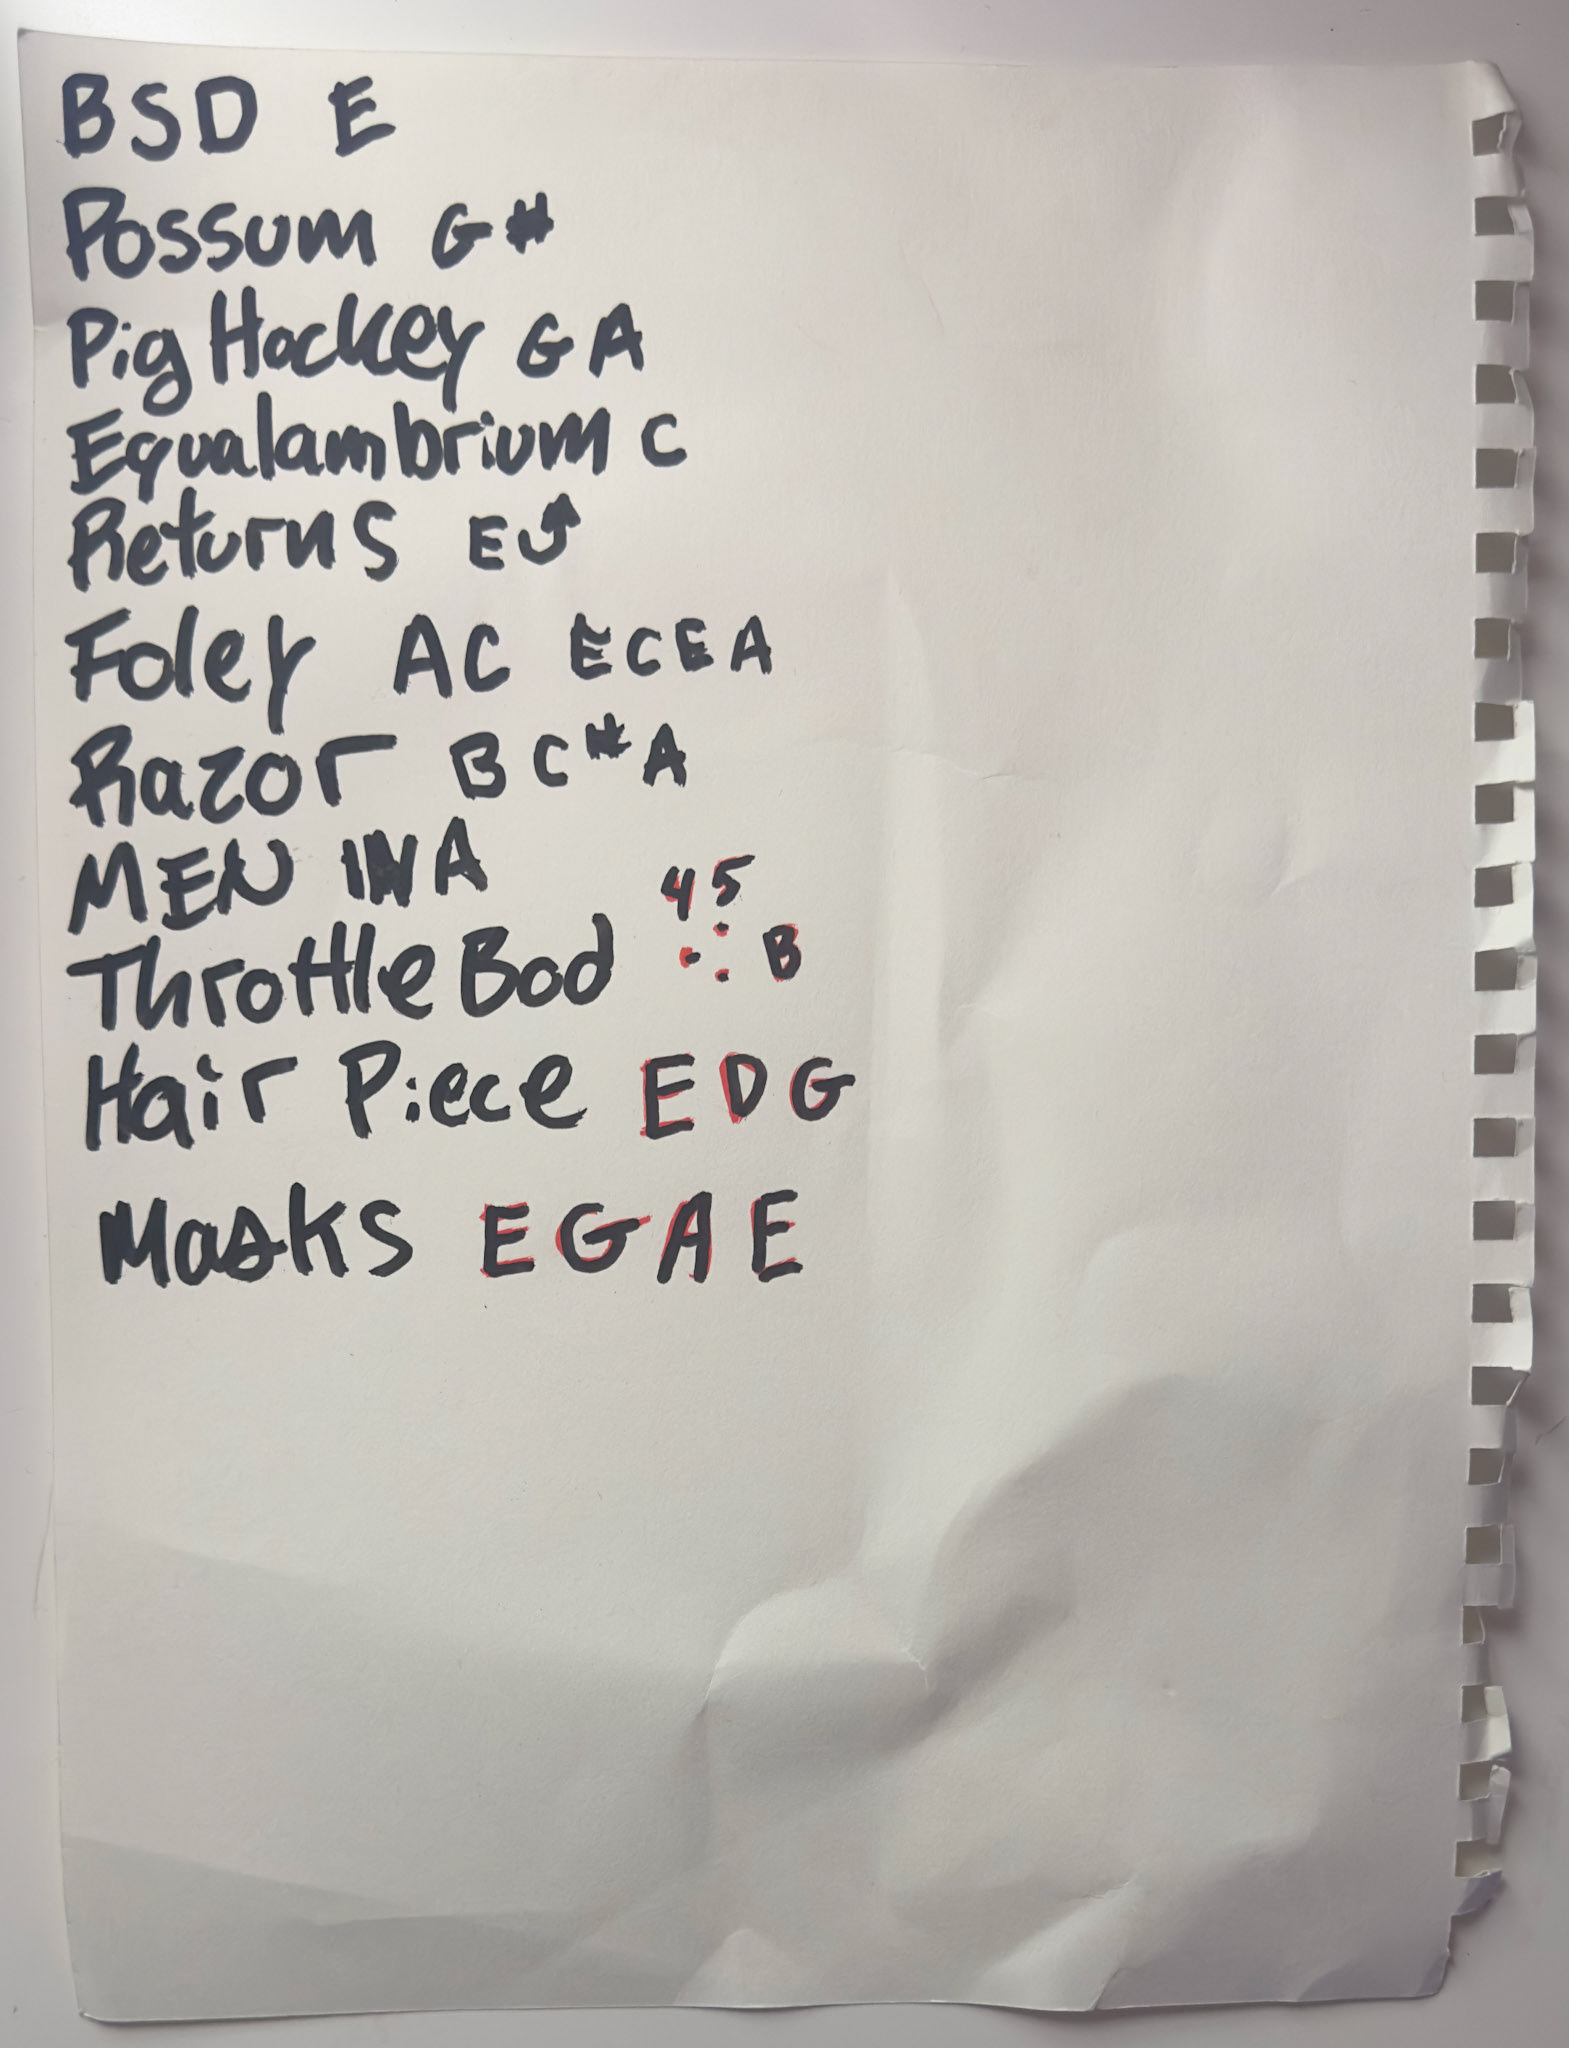 BSD E
Possum G#
Pig Hockey G A
Equalambrium C
Returns E⤴
Foley AC ECEA
Razor B C# A
MEN IN A
45
Throttle Bod B
Hair Piece E D G
Masks E G A E